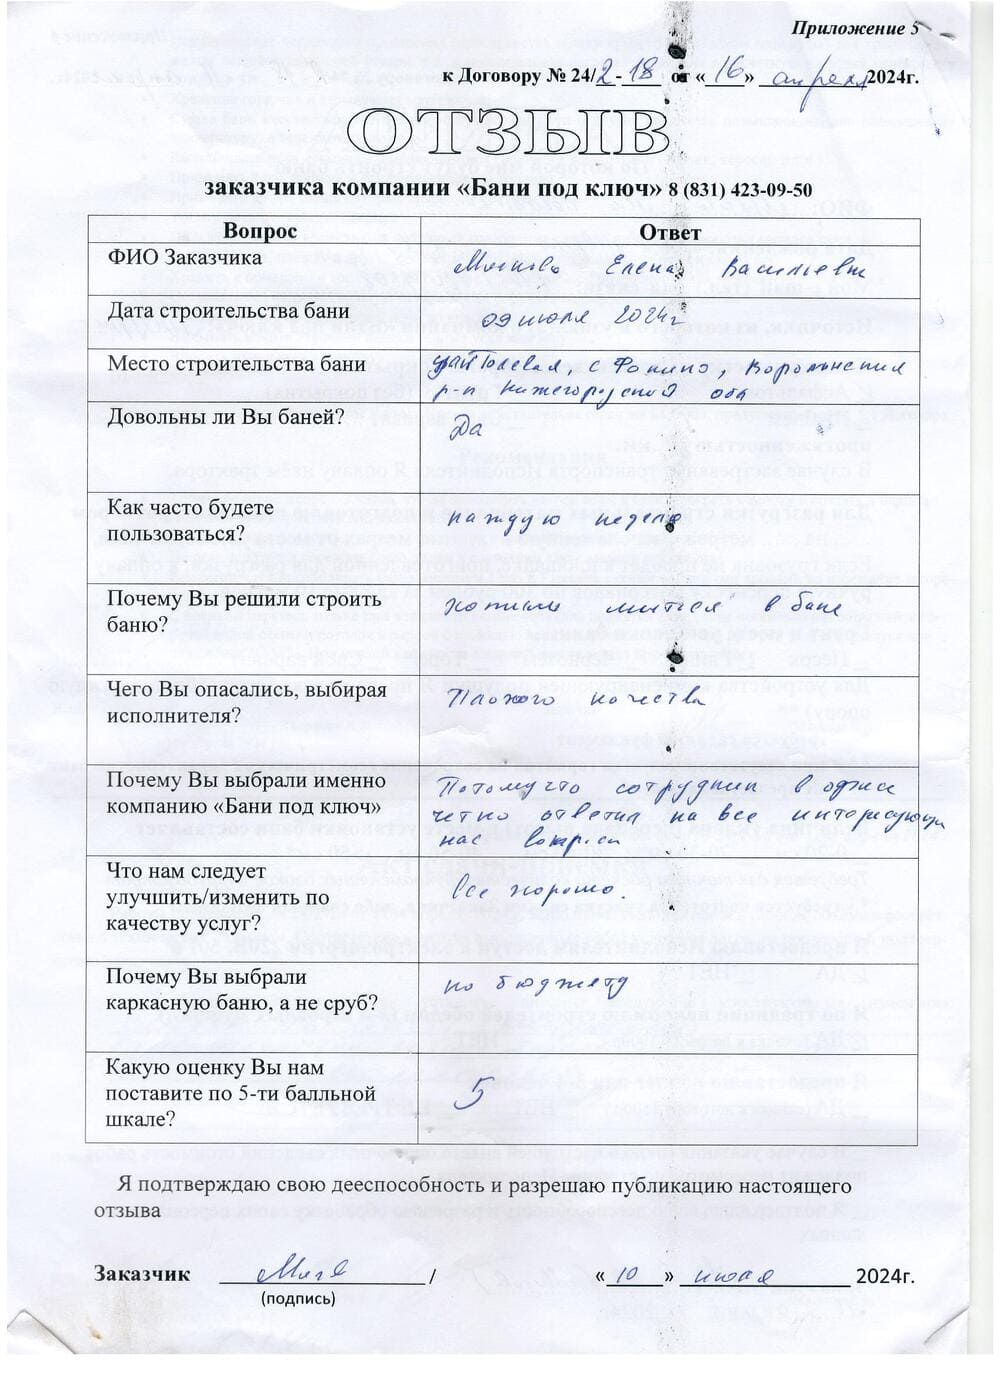 Приложение 5
к Договору № 24/2-18 от «16» апреля 2024г.
ОТЗЫВ
заказчика компании «Бани под ключ» 8 (831) 423-09-50
Вопрос Ответ
ФИО Заказчика Елена Васильевна
Дата строительства бани 09 июля 2024г.
Место строительства бани Полевая, с Фокино, Воротынский
р-н Нижегородский обл
Довольны ли Вы баней? Да
Как часто будете
пользоваться?
каждую неделю
Почему Вы решили строить
баню?
хотим мыться в бане
Чего Вы опасались, выбирая
исполнителя?
Плохого качества
Почему Вы выбрали именно
компанию «Бани под ключ»
Потому что сотрудник в офисе
четко ответил на все интересующи
нас вопросы
Что нам следует
улучшить/изменить по
качеству услуг?
все хорошо.
Почему Вы выбрали
каркасную баню, а не сруб?
по бюджету
Какую оценку Вы нам
поставите по 5-ти балльной
шкале?
5
Я подтверждаю свою дееспособность и разрешаю публикацию настоящего
отзыва
Заказчик / «10» июля 2024г.
(подпись)